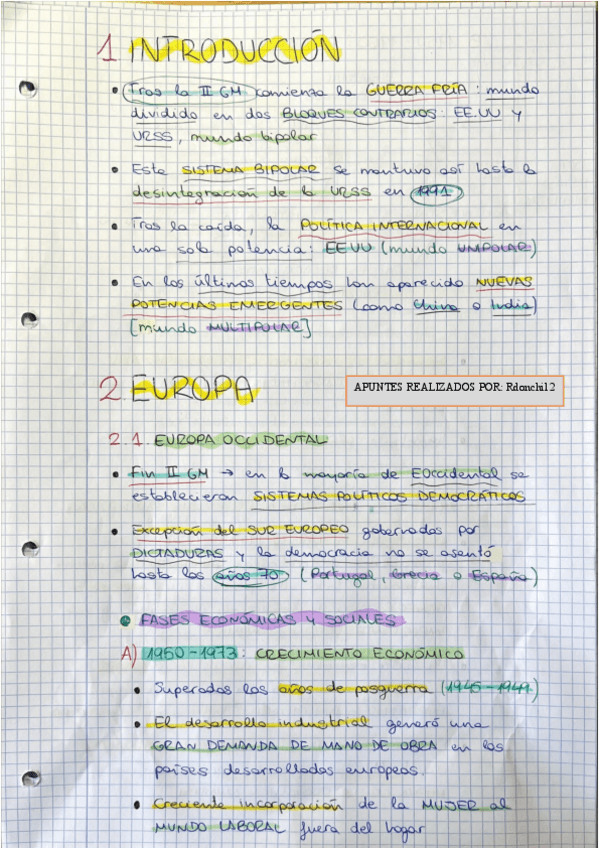 1 INTRODUCCIÓN
• Tras la II GM comienza la GUERRA FRÍA: mundo
dividido en dos BLOQUES CONTRARIOS: EE.UU y
URSS, mundo bipolar
• Este SISTEMA BIPOLAR se mantuvo así hasta la
desintegración de la URSS en 1991
• Tras la caída, la POLÍTICA INTERNACIONAL en
una sola potencia: EEUU (mundo UNIPOLAR)
• En los últimos tiempos han aparecido NUEVAS
POTENCIAS EMERGENTES (como China o India)
[mundo MULTIPOLAR]
2. EUROPA
APUNTES REALIZADOS POR: Rdonchi12
2.1. EUROPA OCCIDENTAL
• Fin II GM → en la mayoría de EOccidental se
establecieron SISTEMAS POLÍTICOS DEMOCRÁTICOS
• Excepción del SUR EUROPEO gobernados por
DICTADURAS y la democracia no se asentó
hasta los años 70 (Portugal, Grecia o España)
• FASES ECONÓMICAS Y SOCIALES
A) 1950-1973: CRECIMIENTO ECONÓMICO
• Superados los años de posguerra (1945-1949)
• El desarrollo industrial generó una
GRAN DEMANDA DE MANO DE OBRA en los
países desarrollados europeos.
• Creciente incorporación de la MUJER al
MUNDO LABORAL fuera del hogar